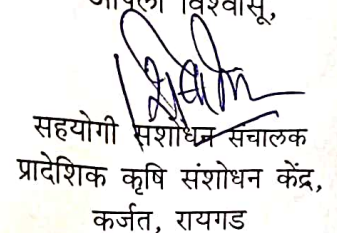 आपला विश्वासू,
सहयोगी संशोधन संचालक
प्रादेशिक कृषि संशोधन केंद्र,
कर्जत, रायगड